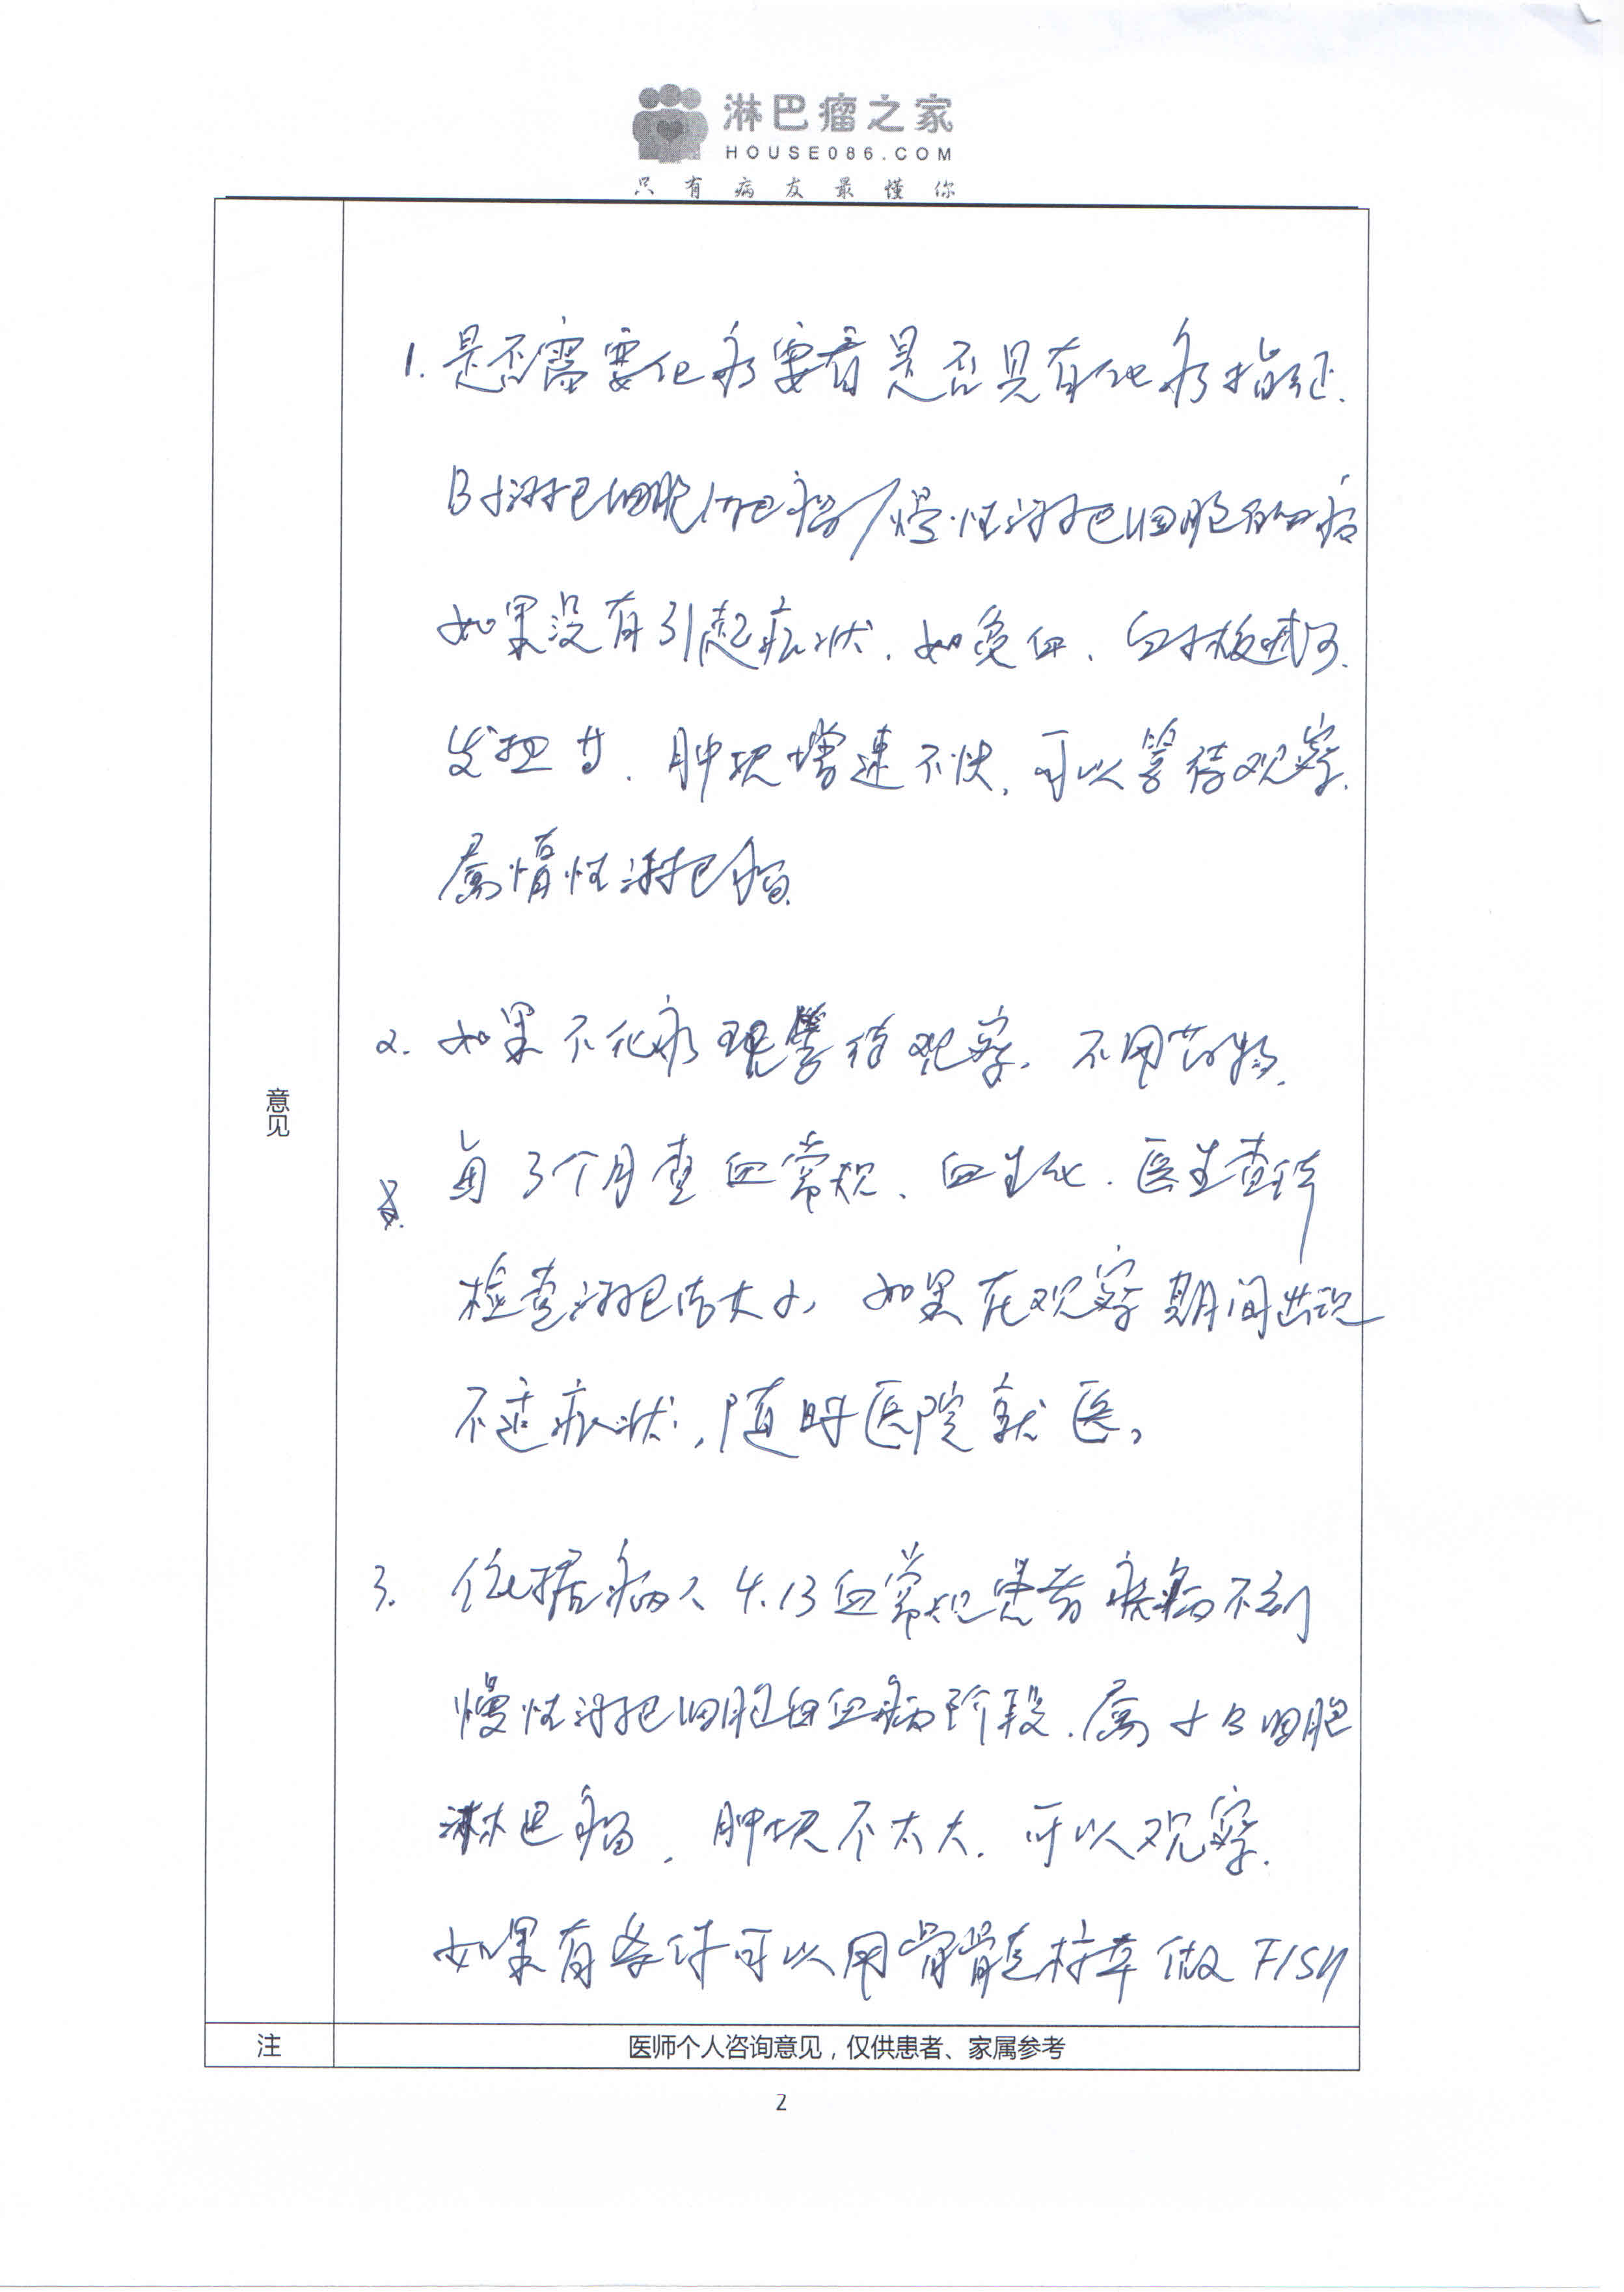 淋巴瘤之家
HOUSE086.COM
只有病友最懂你
1. 是否需要化疗要看是否具有化疗指征.
B小淋巴细胞淋巴瘤/慢性淋巴细胞白血病
如果没有引起症状. 如贫血、血小板减少.
发热等. 肿块增速不快, 可以等待观察.
属惰性淋巴瘤.
2. 如果不化疗 现等待观察. 不用药物.
每3个月查血常规、血生化. 医生查体
检查淋巴结大小, 如果在观察期间出现
不适症状, 随时医院就医。
3. 依据病人4.13血常规患者疾病不到
慢性淋巴细胞白血病阶段. 属小B细胞
淋巴瘤, 肿块不太大. 可以观察.
如果有条件可以用骨髓标本做FISH
意见
注
医师个人咨询意见，仅供患者、家属参考
2